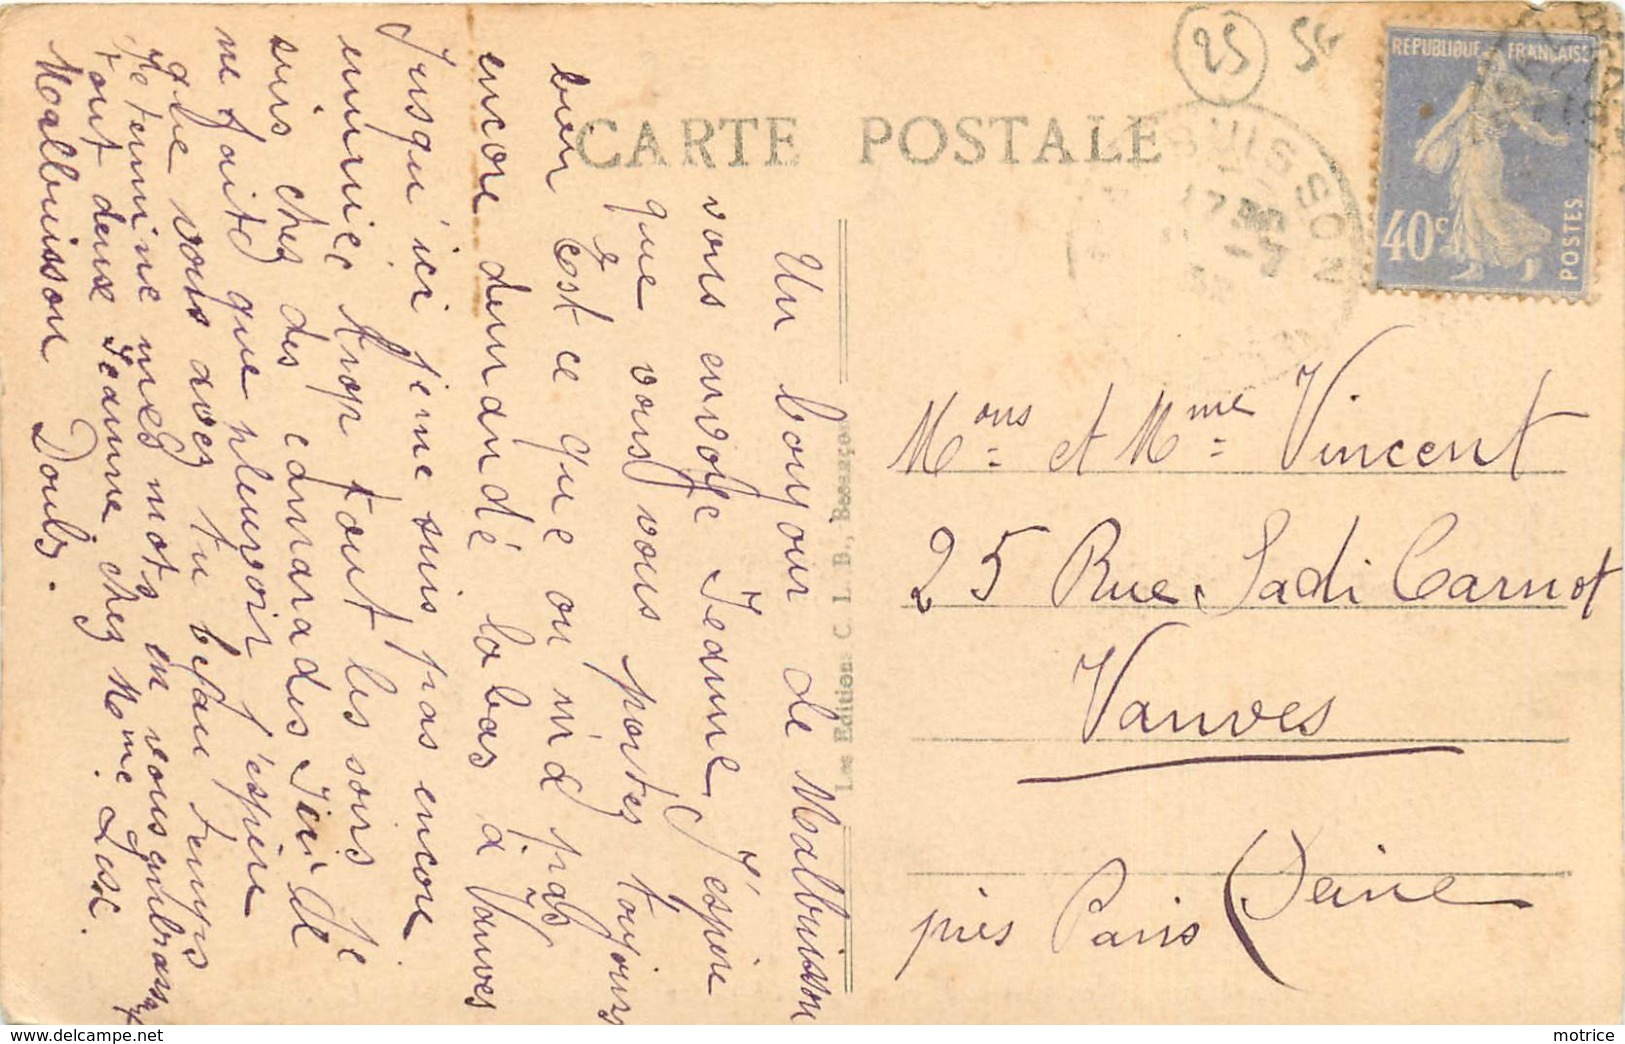 CARTE POSTALE
25
REPUBLIQUE FRANÇAISE
40c
POSTES
Les Editions C. L. B., Besançon
Un bonjour de Malbuisson
vous envoye Jeanne J'espère
que vous vous portez toujours
bien Est ce que on m'a pas
encore demandé la bas à Vanves
Jusqu'ici je me suis pas encore
ennuiéc trop tout les soirs je
suis chez des camarades Ici il
ne fait que pleuvoir j'espère
que vous avez tu beau temps
Je termine mes mots en vous embrassant
tout deux Jeanne chez Mme Lesc.
Malbuisson Doubs.
Mons et Mme Vincent
25 Rue Sadi Carnot
Vanves
près Paris (Seine
motrice